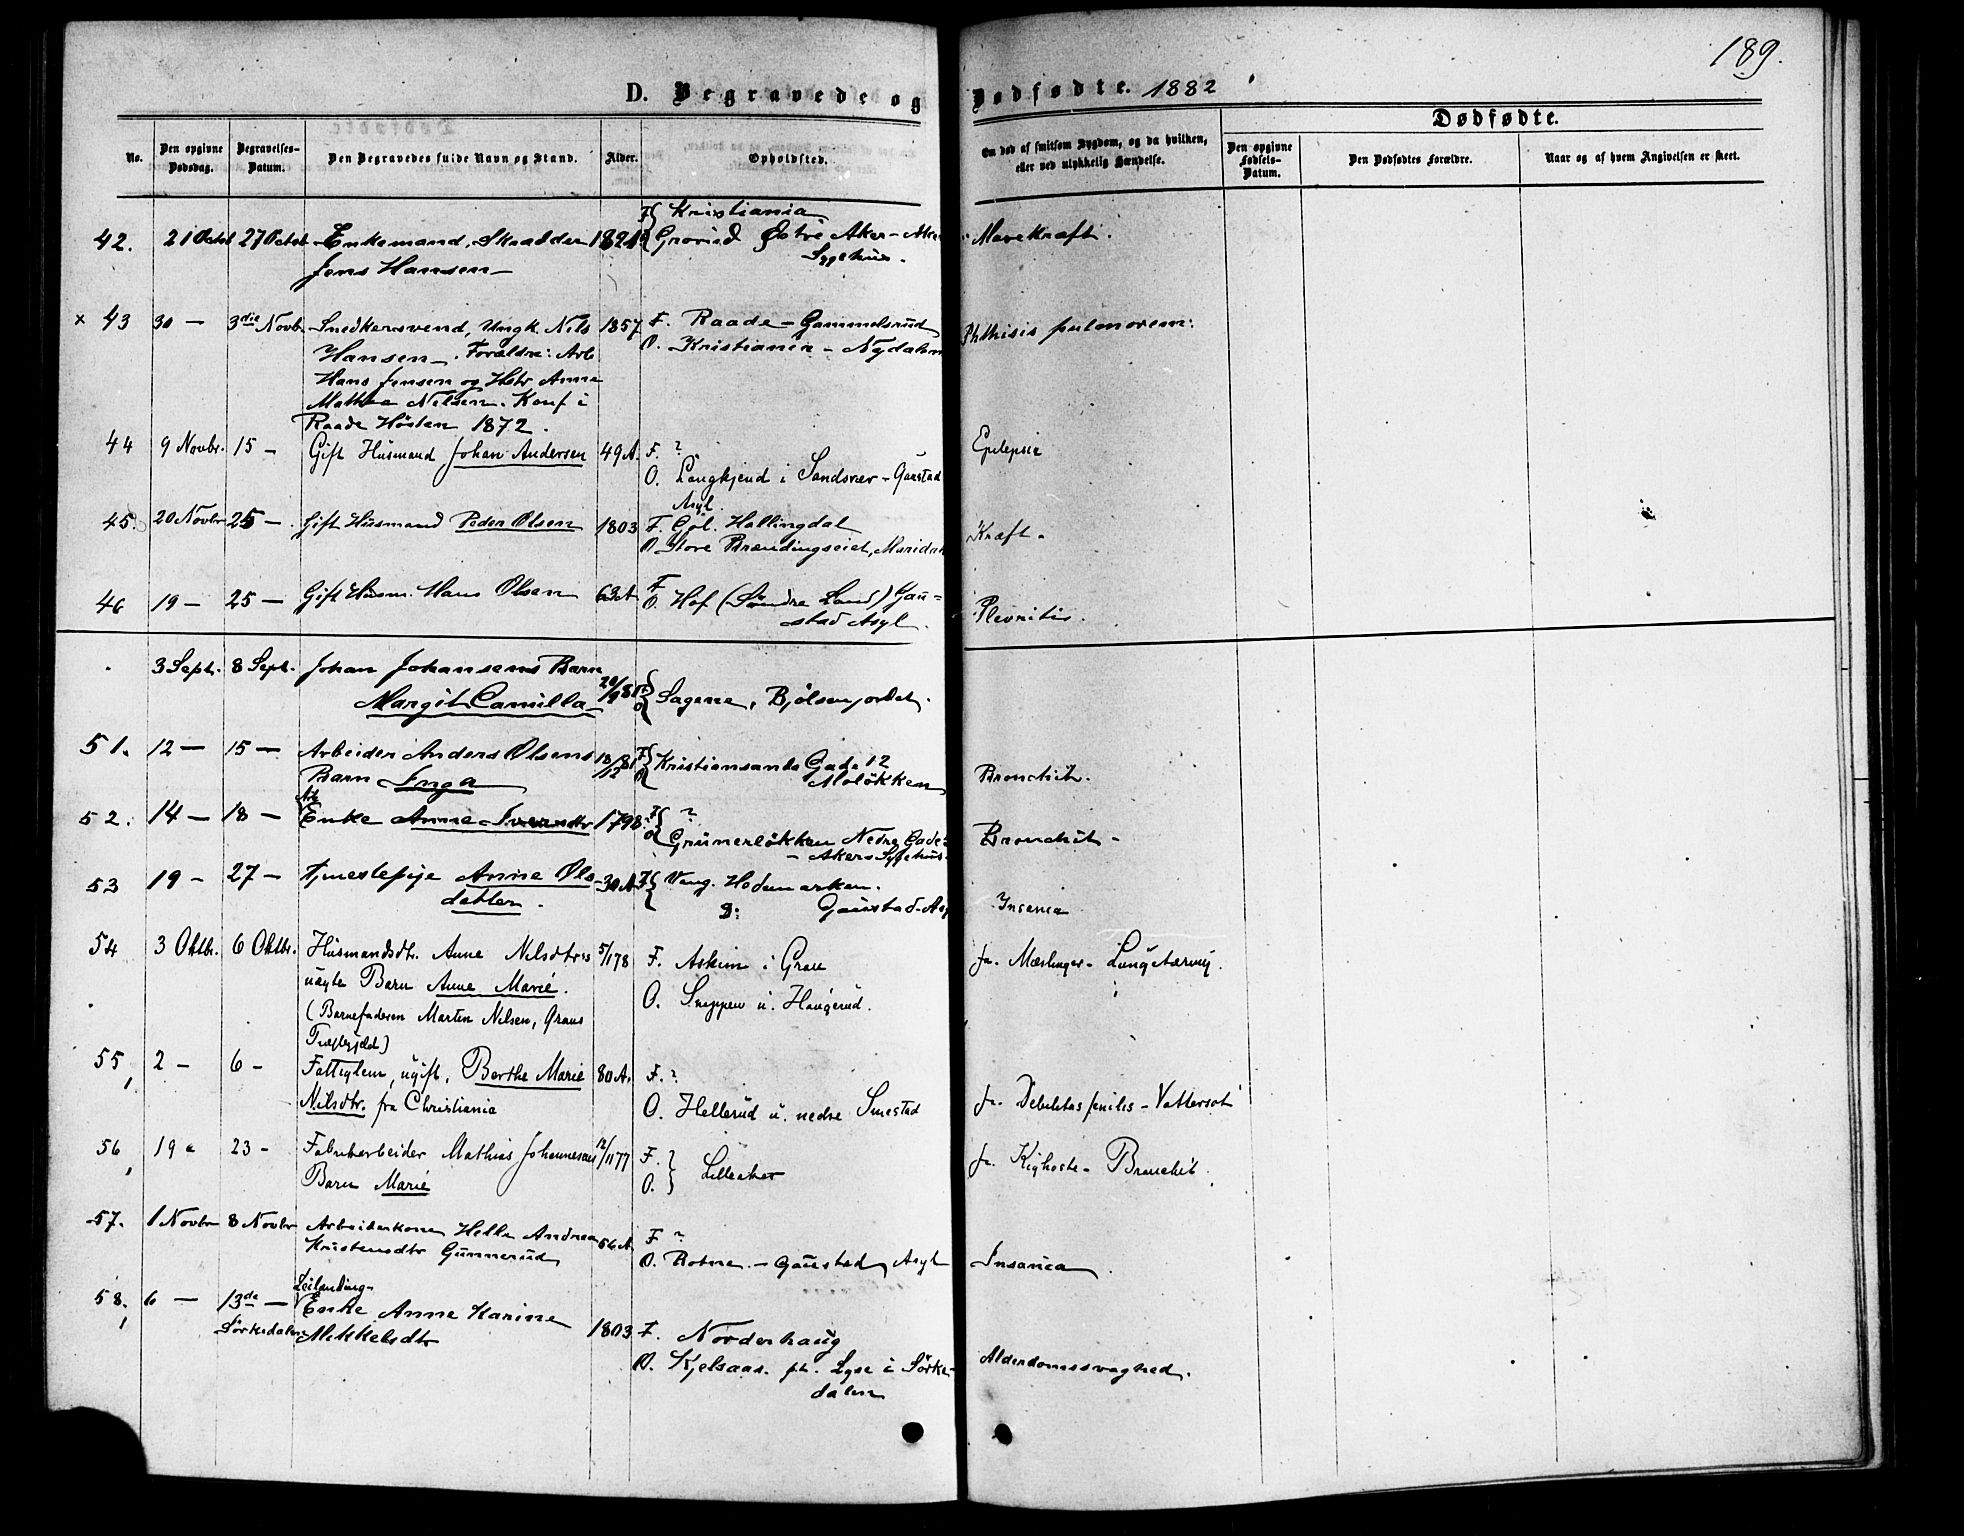 189.
D. Begravede og Dødfødte. 1882
Dødfødte.
No.
Den opgivne Dødsdag.
Begravelses-Datum.
Den Begravedes fulde Navn og Stand.
Alder.
Opholdsted.
Om død af smitsom Sygdom, og da hvilken, eller ved ulykkelig Hændelse.
Den opgivne Fødsels-Datum.
Den Dødfødtes Forældre.
Naar og af hvem Angivelsen er skeet.
F Kristiania
42. 21 Octob 27 Octob Enkemand, Skrædder Grorud Østre Aker - Aker Mavekræft.
Jens Hansen Sygehus.
x 43 30 - 3die Novb. Snedkersvend, Ungk. Nils 1857 F. Raade - Gammelsrud Phthisis pulmonem:
Hansen. Forældre: Arb O. Kristiania - Nydalen
Hans Jensen og Hstr Anne
Mathea Nielsen. Konf i
Raade Høsten 1872.
44 9 Novbr. 15 - Gift Husmand Johan Andersen 49 A. F. ? Epilepsie
O. Langkjend i Sandsvær - Gaustad
Asyl.
45. 20 Novbr 25 - Gift Husmand Peder Olsen 1803 F. Gol. Hallingdal Kræft.
O Store Brændingseiet, Maridal
46 19 - 25 - Gift Husm. Hans Olsen 63 A F O. Hof (Søndre Land) Gau=
stad Asyl. Plevritis.
3 Sept. 8 Sept. Johan Johansens Barn
Margit Camilla 20/9 81 F O Sagene, Bjølsenjordet.
51. 12 - 15 - Arbeider Anders Olsens 13/12 81 F O Kristiansands Gade 12
Barn Inga Møløkken Bronchit.
52. 14 - 18 - Arb Enke Anne Iversdtr 1798. F ?
O Grünerløkken Nedre Gade Bronchit -
- Akers Sygehus
53 19 - 27 - Tjenestepige Anne Ols- 30 A F Vang. Hedemarken.
datter. O: Gaustad-Asyl Insania
54 3 Oktbr. 6 Oktbr. Husmandsdtr. Anne Nilsdtrs 5/1 78 F. Askim i Gran Ja. Mæslinger - Lungetæring.
uægte Barn Anne Marie. O. Snippen u. Haugerud.
(Barnefaderen Martin Nilsen, Grans
55, 2 - 6 - Fattiglem, ugift, Berthe Marie 80 A. F. ?
Nilsdtr. fra Christiania O. Hellerud u. nedre Smestad Ja. Debilitas senilis - Vattersot
56, 19 - 23 - Fabrikarbeider Mathias Johannesens 12/11 77 F. O. Lilleaker Ja. Kighoste - Bronchit.
Barn Marie
57. 1 Novbr 8 Novbr Arbeiderkone Helle Andrea 56 A F ?
Kristensdtr Gunnerud O. Rotne. - Gaustad Asyl Insania
Leilænding-
58, 6 - 13de - Enke Anne Karine
Sørkedalen Mikkelsdtr 1803 F. Norderhaug
O. Kjelsaas. pl. Lyse i Sørke-
dalen Alderdomssvaghed.